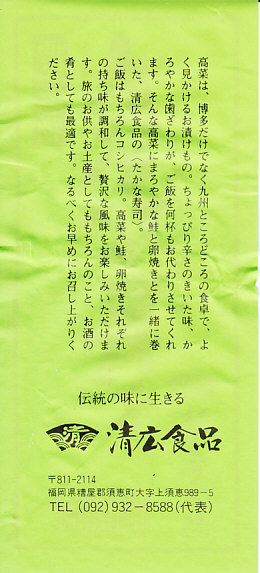 高菜は、博多だけでなく九州ところどころの食卓で、よ
く見かけるお漬けもの。ちょっぴり辛さのきいた味、か
ろやかな歯ざわりが、ご飯を何杯もお代わりさせてくれ
ます。そんな高菜にまろやかな鮭と卵焼きとを一緒に巻
いた、清広食品の〈たかな寿司〉。
ご飯はもちろんコシヒカリ。高菜や鮭、卵焼きそれぞれ
の持ち味が調和して、贅沢な風味をお楽しみいただけま
す。旅のお供やお土産としてももちろんのこと、お酒の
肴としても最適です。なるべくお早めにお召し上がりく
ださい。
伝統の味に生きる
清 清広食品
〒811-2114
福岡県糟屋郡須恵町大字上須恵989-5
TEL (092) 932-8588(代表)